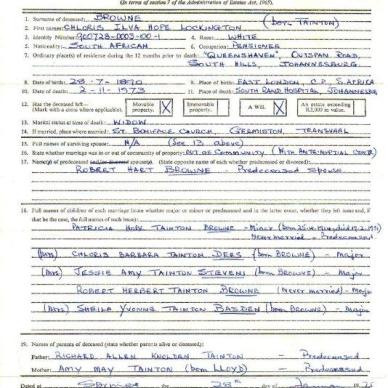 (In terms of section 7 of the Administration of Estates Act, 1965).
1. Surname of deceased: BROWNE (born TAINTON)
2. First names: CHLORIS ILVA HOPE LOCKINGTON
3. Identity Number: 900728-0003-00-1 4. Race: WHITE
5. Nationality: SOUTH AFRICAN 6. Occupation: PENSIONER
7. Ordinary place(s) of residence during the 12 months prior to death: "QUEENSHAVEN", OUTSPAN ROAD,
SOUTH HILLS, JOHANNESBURG
8. Date of birth: 28-7-1890 9. Place of birth: EAST LONDON, C.P. S. AFRICA
10. Date of death: 2-11-1973 11. Place of death: SOUTH RAND HOSPITAL, JOHANNESBURG
12. Has the deceased left—
(Mark with a cross where applicable). Movable property: X Immovable property: A Will: X An estate exceeding
value:
13. Marital status at time of death: WIDOW
14. If married, place where married: ST. BONIFACE CHURCH, GERMISTON, TRANSVAAL
15. Full names of surviving spouse: N/A (SEE 13 above)
16. State whether marriage was in or out of community of property: OUT OF COMMUNITY (WITH ANTE-NUPTIAL CONTR)
17. Name(s) of predeceased spouse(s). (State opposite name of each whether predeceased or divorced):
ROBERT HART BROWNE - Predeceased spouse
18. Full names of children of each marriage (state whether major or minor or predeceased and in the latter event, whether they left issue and, if
that be the case, the full names of such issue):
PATRICIA HOPE TAINTON BROWNE - Minor
Never married - Predeceased
(Mrs) CHLORIS BARBARA TAINTON DERS (born BROWNE) - Major
(Mrs) JESSIE AMY TAINTON STEVENS (born BROWNE) - Major
ROBERT HERBERT TAINTON BROWNE (Never married) - Major
(Mrs) SHEILA YVONNE TAINTON BASDEN (born BROWNE) - Major
19. Names of parents of deceased (state whether parents alive or deceased):
Father: RICHARD ALLEN KNOLDEN TAINTON - Predeceased
Mother: AMY MAY TAINTON (born LLOYD) - Predeceased
Dated at the 28th